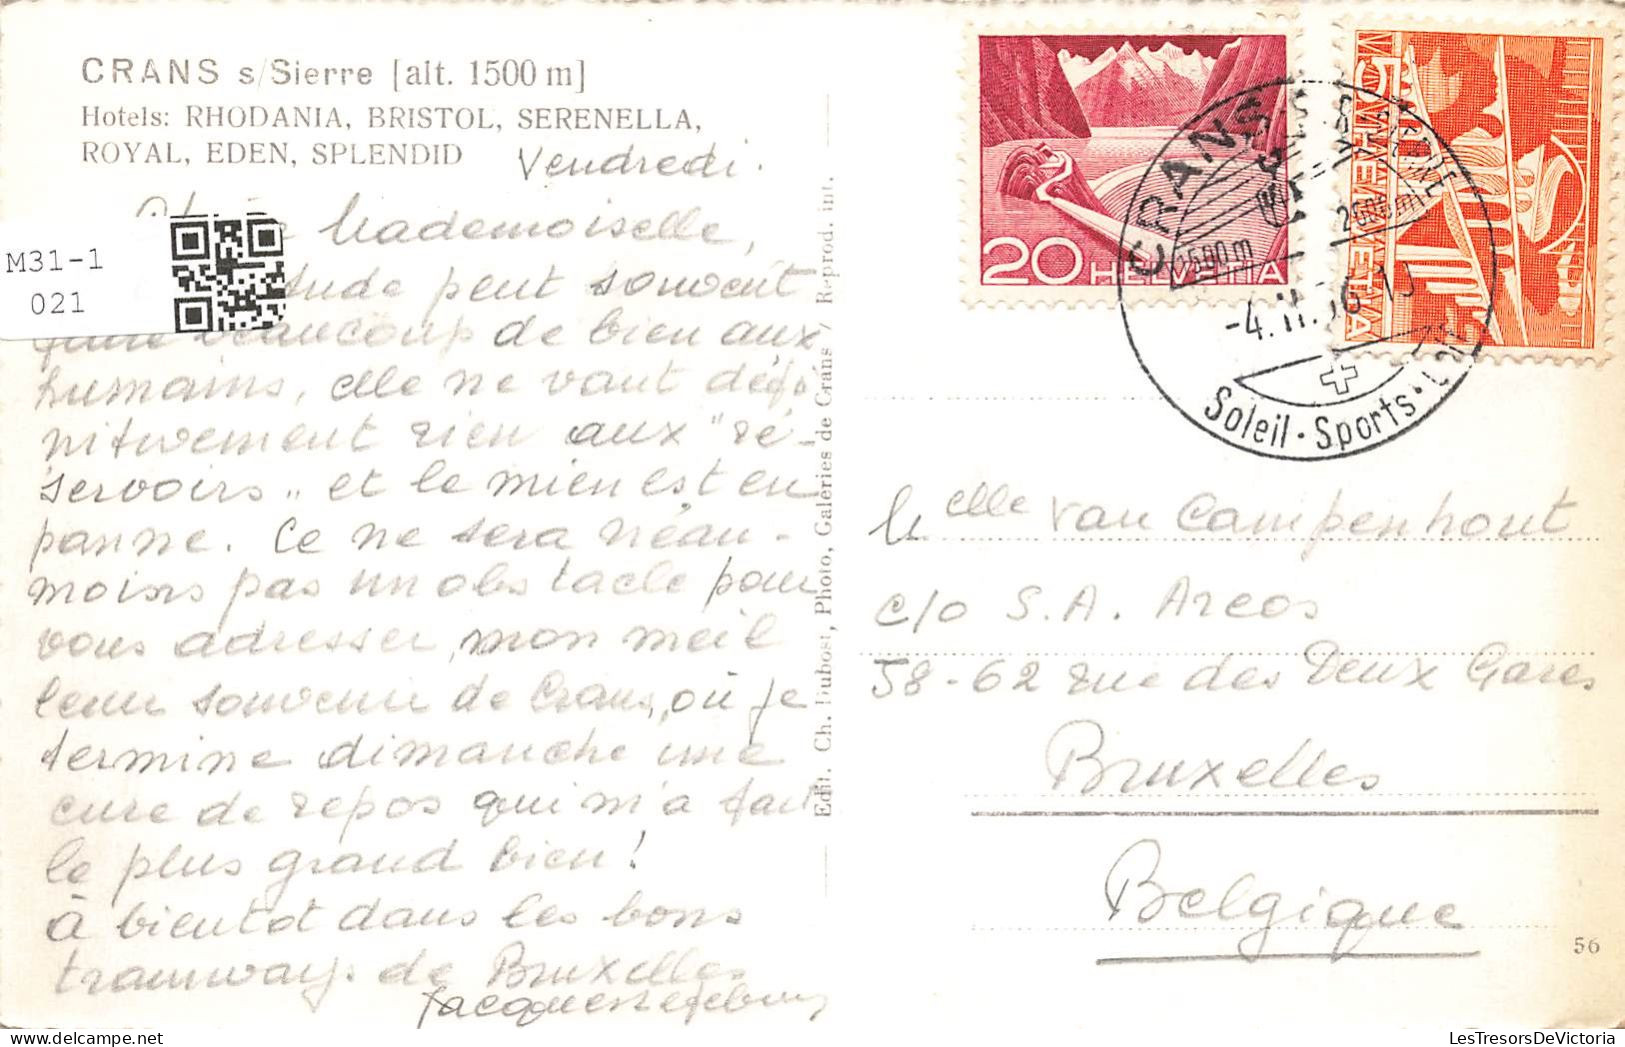 CRANS s/Sierre [alt. 1500 m]
Hotels: RHODANIA, BRISTOL, SERENELLA,
ROYAL, EDEN, SPLENDID
Vendredi.
Mademoiselle,
peut souvent
faire beaucoup de bien aux
humains, elle ne vaut défi
nitivement rien aux "ré-
servoirs" et le mien est en
panne. Ce ne sera néan-
moins pas un obstacle pour
vous adresser, mon meil
leur souvenir de Crans, où je
termine dimanche une
cure de repos qui m'a fait
le plus grand bien!
à bientot dans les bons
tramways de Bruxelles
M31-1
021
Edit. Ch. Dubost, Photo, Galeries de Crans / Reprod. int.
20 HELVETIA
5 HELVETIA
CRANS s. SIERRE
1500 m
-4.II.56.19
Soleil · Sports ·
Melle van Campenhout
c/o S.A. Arcos
58-62 rue des Deux Gares
Bruxelles
Belgique
56
www.LesTresorsDeVictoria